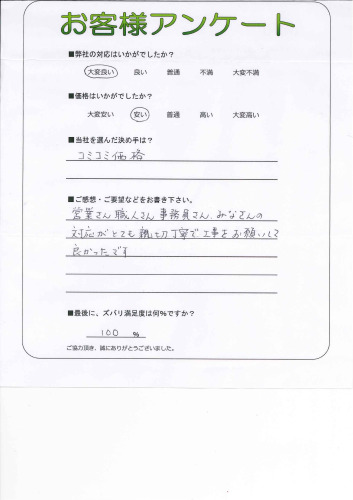 お客様アンケート
■弊社の対応はいかがでしたか?
大変良い 良い 普通 不満 大変不満
■価格はいかがでしたか?
大変安い 安い 普通 高い 大変高い
■当社を選んだ決め手は?
コミコミ価格
■ご感想・ご要望などをお書き下さい。
営業さん 職人さん 事務員さん、みなさんの
対応がとても親切丁寧で工事をお願いして
良かったです
■最後に、ズバリ満足度は何%ですか?
100 %
ご協力頂き、誠にありがとうございました。